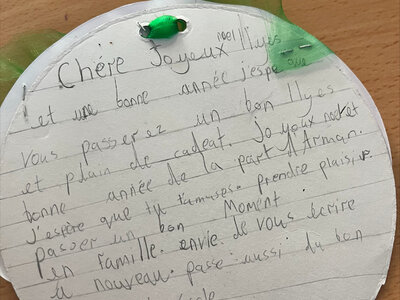 Chère Joyeux noel Ilyes
et une bonne année j'espe que
vous passerez un bon Ilyes
et plain de cadeat. Joyeux noel et
bonne année de la part d'Arman.
j'éspère que tu t'amuse prendre plaisir
passer un bon Moment.
en famille. envie de vous écrire
a nouveau. passe aussi du bon